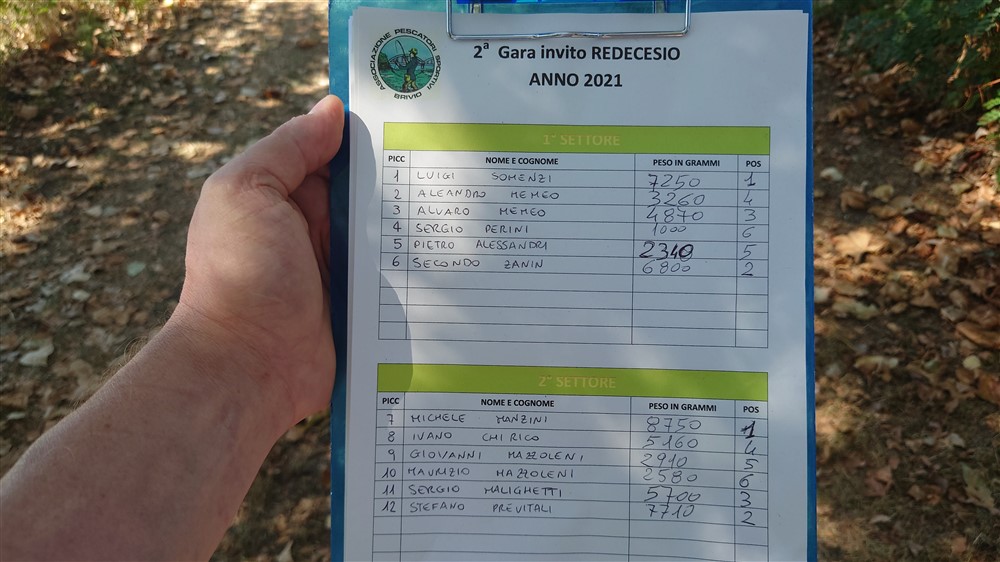 ASSOCIAZIONE PESCATORI SPORTIVI
BRIVIO
2ª Gara invito REDECESIO
ANNO 2021
1° SETTORE
PICC NOME E COGNOME PESO IN GRAMMI POS
1 LUIGI SOMENZI 7250 1
2 ALEANDRO MEMEO 3260 4
3 ALVARO MEMEO 4870 3
4 SERGIO PERINI 1000 6
5 PIETRO ALESSANDRI 2340 5
6 SECONDO ZANIN 6800 2
2° SETTORE
PICC NOME E COGNOME PESO IN GRAMMI POS
7 MICHELE MANZINI 8750 1
8 IVANO CHIRICO 5160 4
9 GIOVANNI MAZZOLENI 2910 5
10 MAURIZIO MAZZOLENI 2580 6
11 SERGIO MALIGHETTI 5700 3
12 STEFANO PREVITALI 7710 2